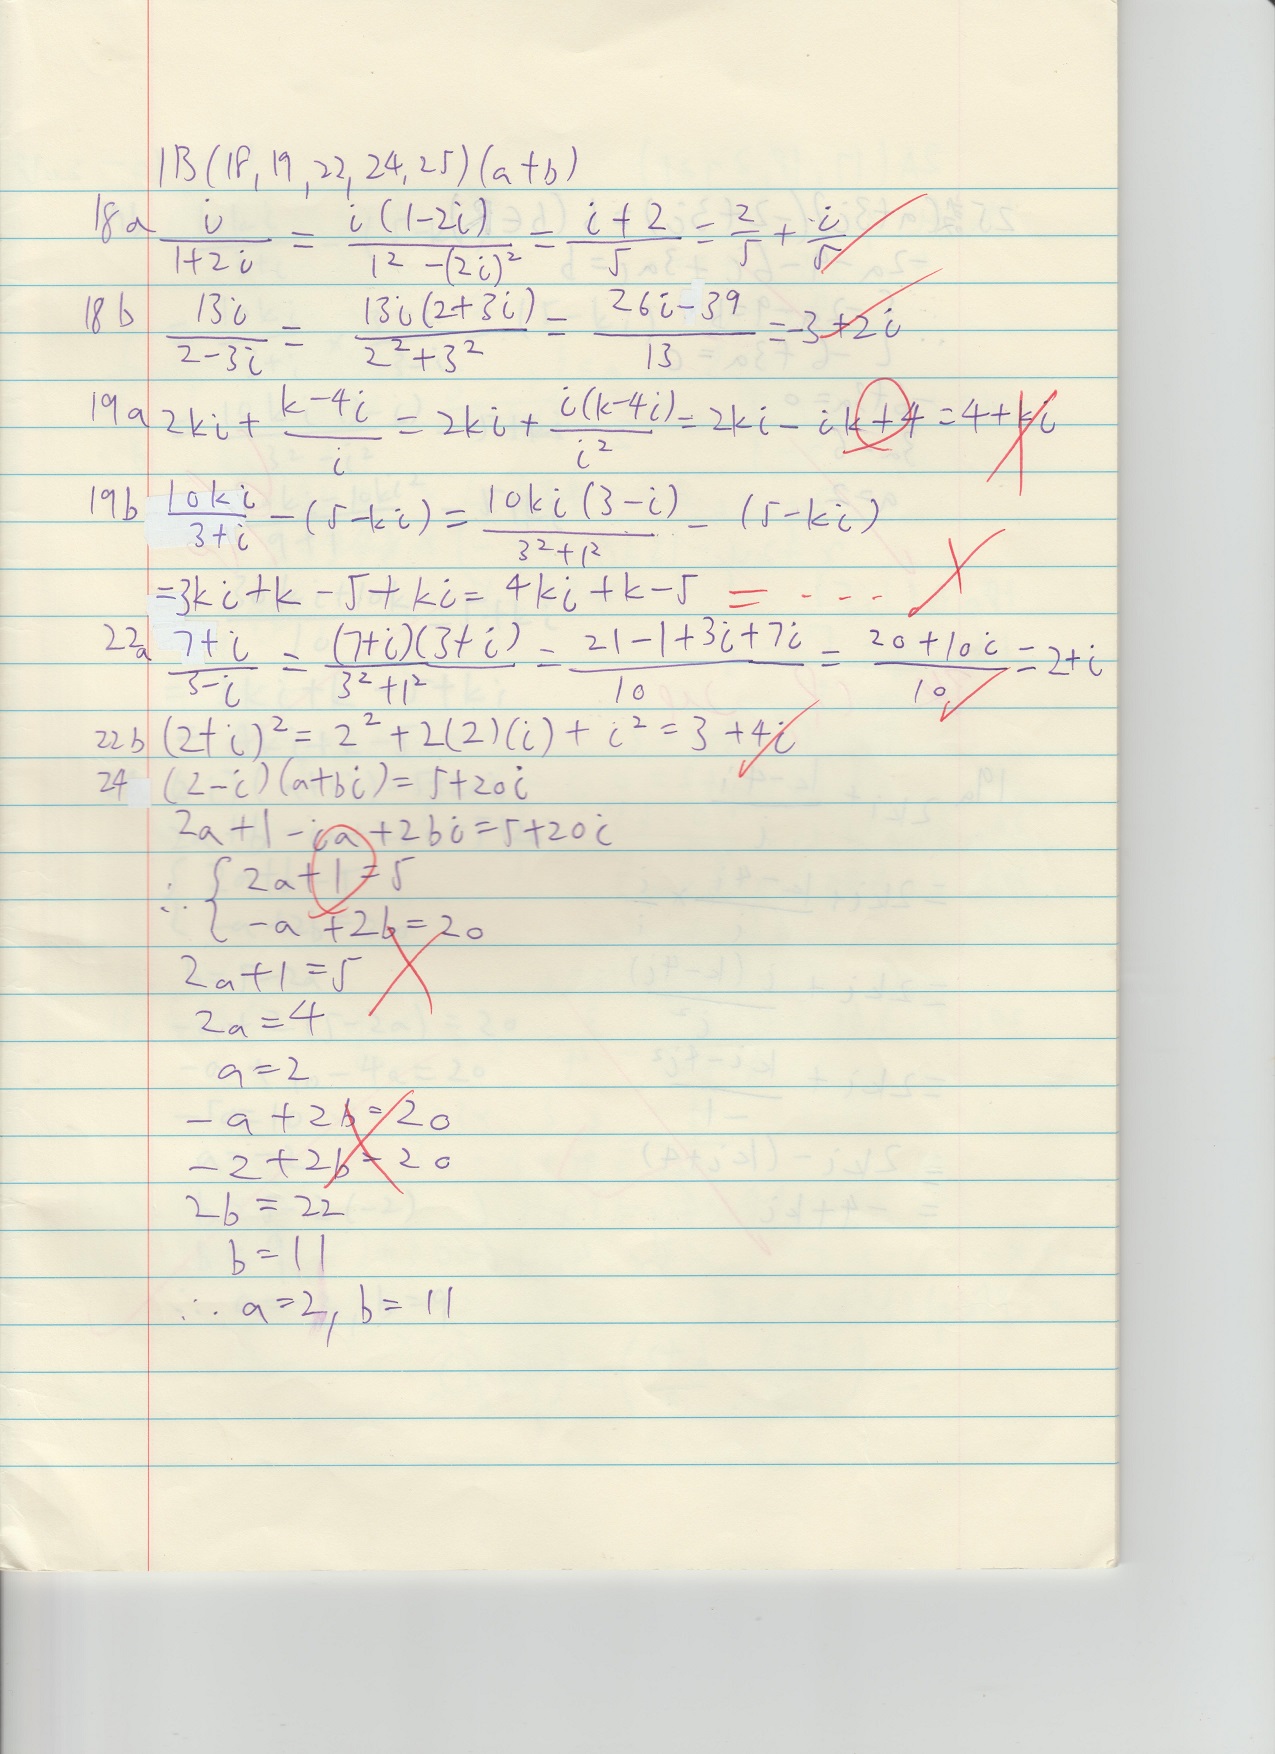 1B (18, 19, 22, 24, 25) (a+b)
18a i/(1+2i) = i(1-2i)/(1²-(2i)²) = (i+2)/5 = 2/5 + i/5
18b 13i/(2-3i) = 13i(2+3i)/(2²+3²) = (26i-39)/13 = -3+2i
19a 2ki + (k-4i)/i = 2ki + i(k-4i)/i² = 2ki - ik + 4 = 4+ki
19b 10ki/(3+i) - (5-ki) = 10ki(3-i)/(3²+1²) - (5-ki)
=3ki+k-5+ki = 4ki+k-5 = ...
22a (7+i)/(3-i) = (7+i)(3+i)/(3²+1²) = (21-1+3i+7i)/10 = (20+10i)/10 = 2+i
22b (2+i)² = 2²+2(2)(i)+i² = 3+4i
24 (2-i)(a+bi) = 5+20i
2a+1-ia+2bi=5+20i
∴ { 2a+1=5
-a+2b=20
2a+1=5
2a=4
a=2
-a+2b=20
-2+2b=20
2b=22
b=11
∴ a=2, b=11